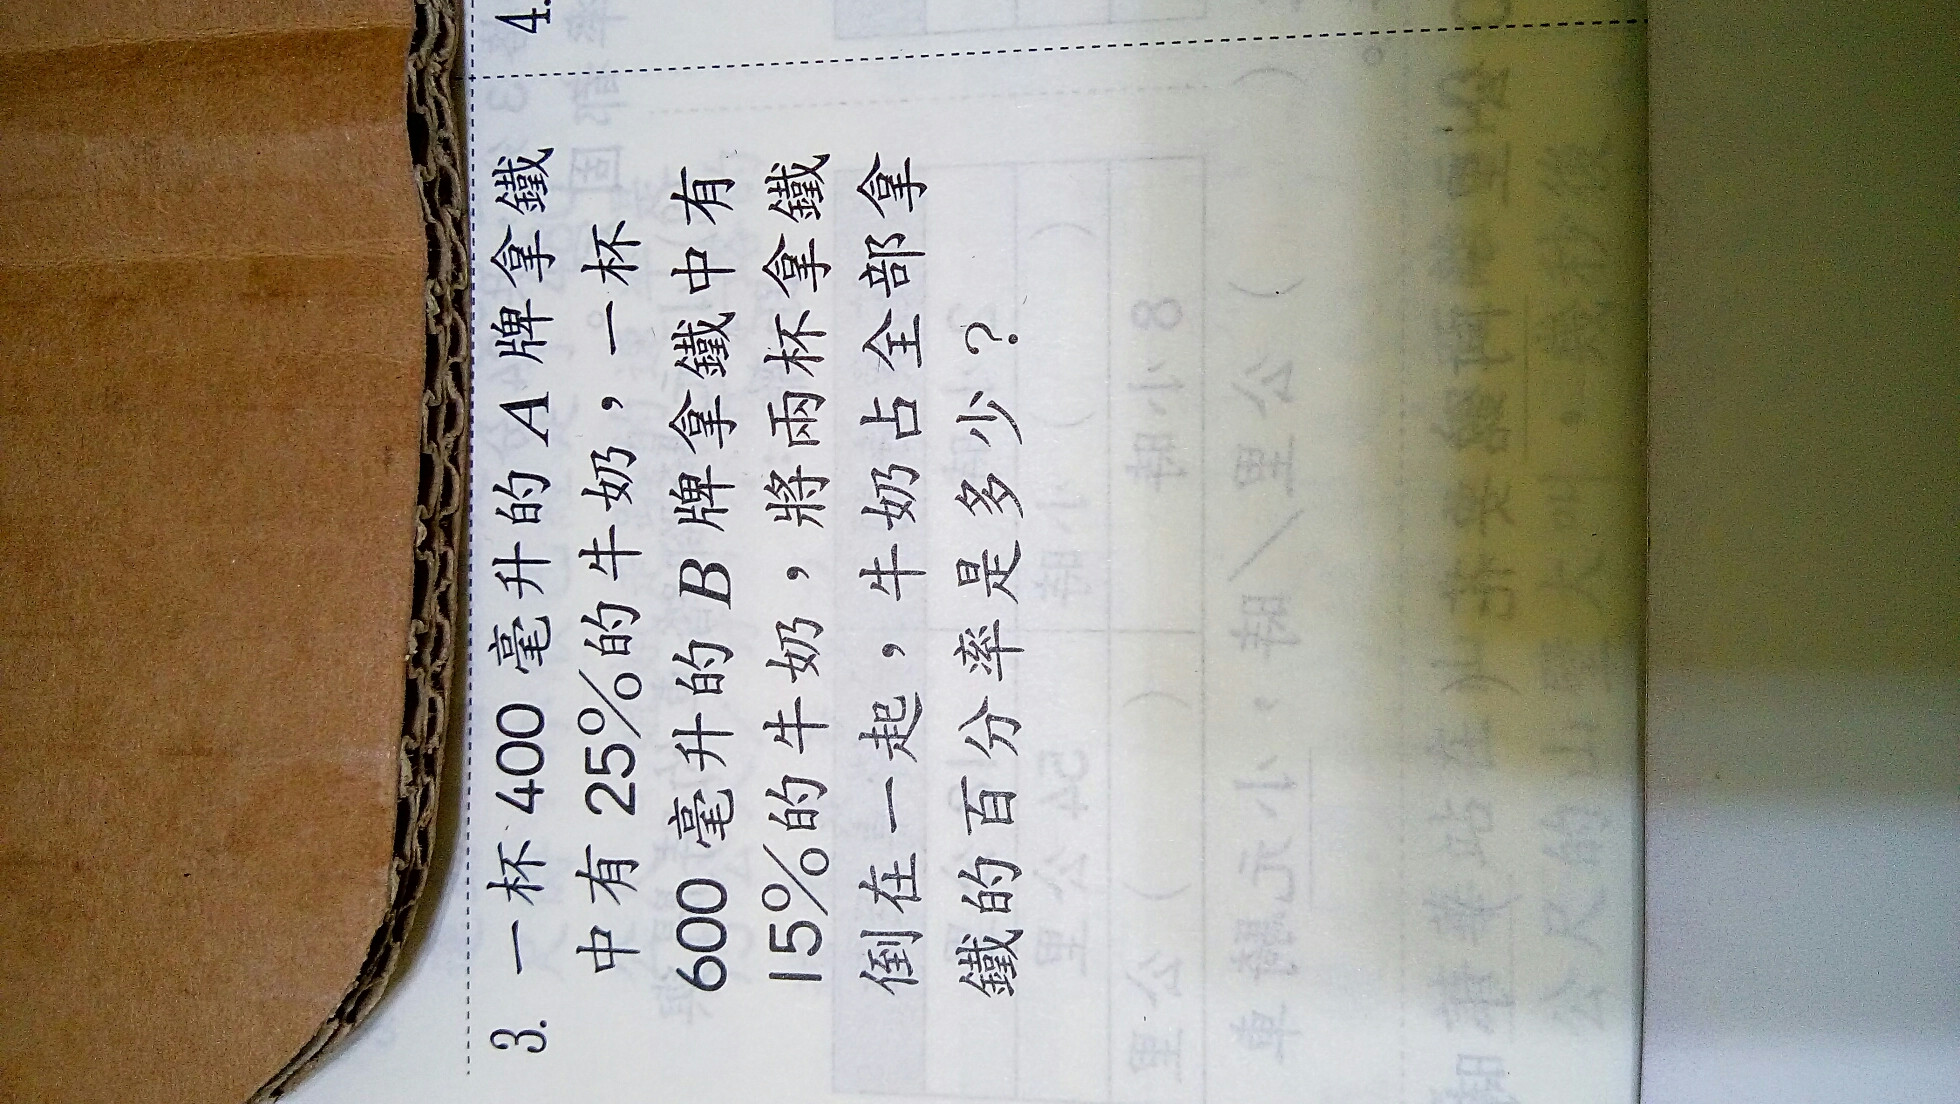 3. 一杯 400 毫升的 A 牌拿鐵
中有 25%的牛奶，一杯
600 毫升的 B 牌拿鐵中有
15%的牛奶，將兩杯拿鐵
倒在一起，牛奶占全部拿
鐵的百分率是多少？
4.